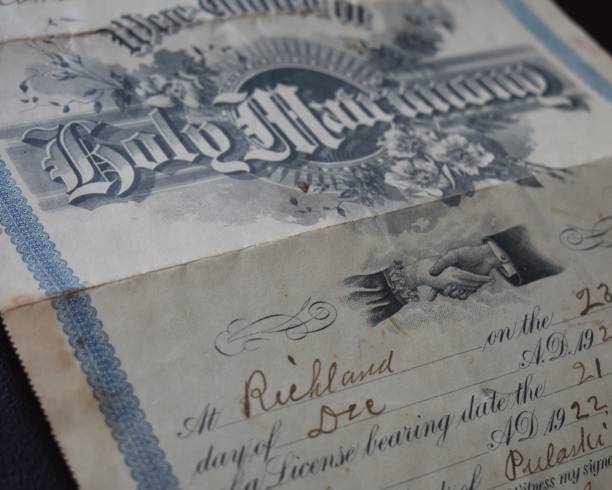 Were United in
Holy Matrimony
At Richland on the 23
day of Dec A.D. 192
of a License bearing date the 21
AD 1922
of Pulaski
Witness my signe